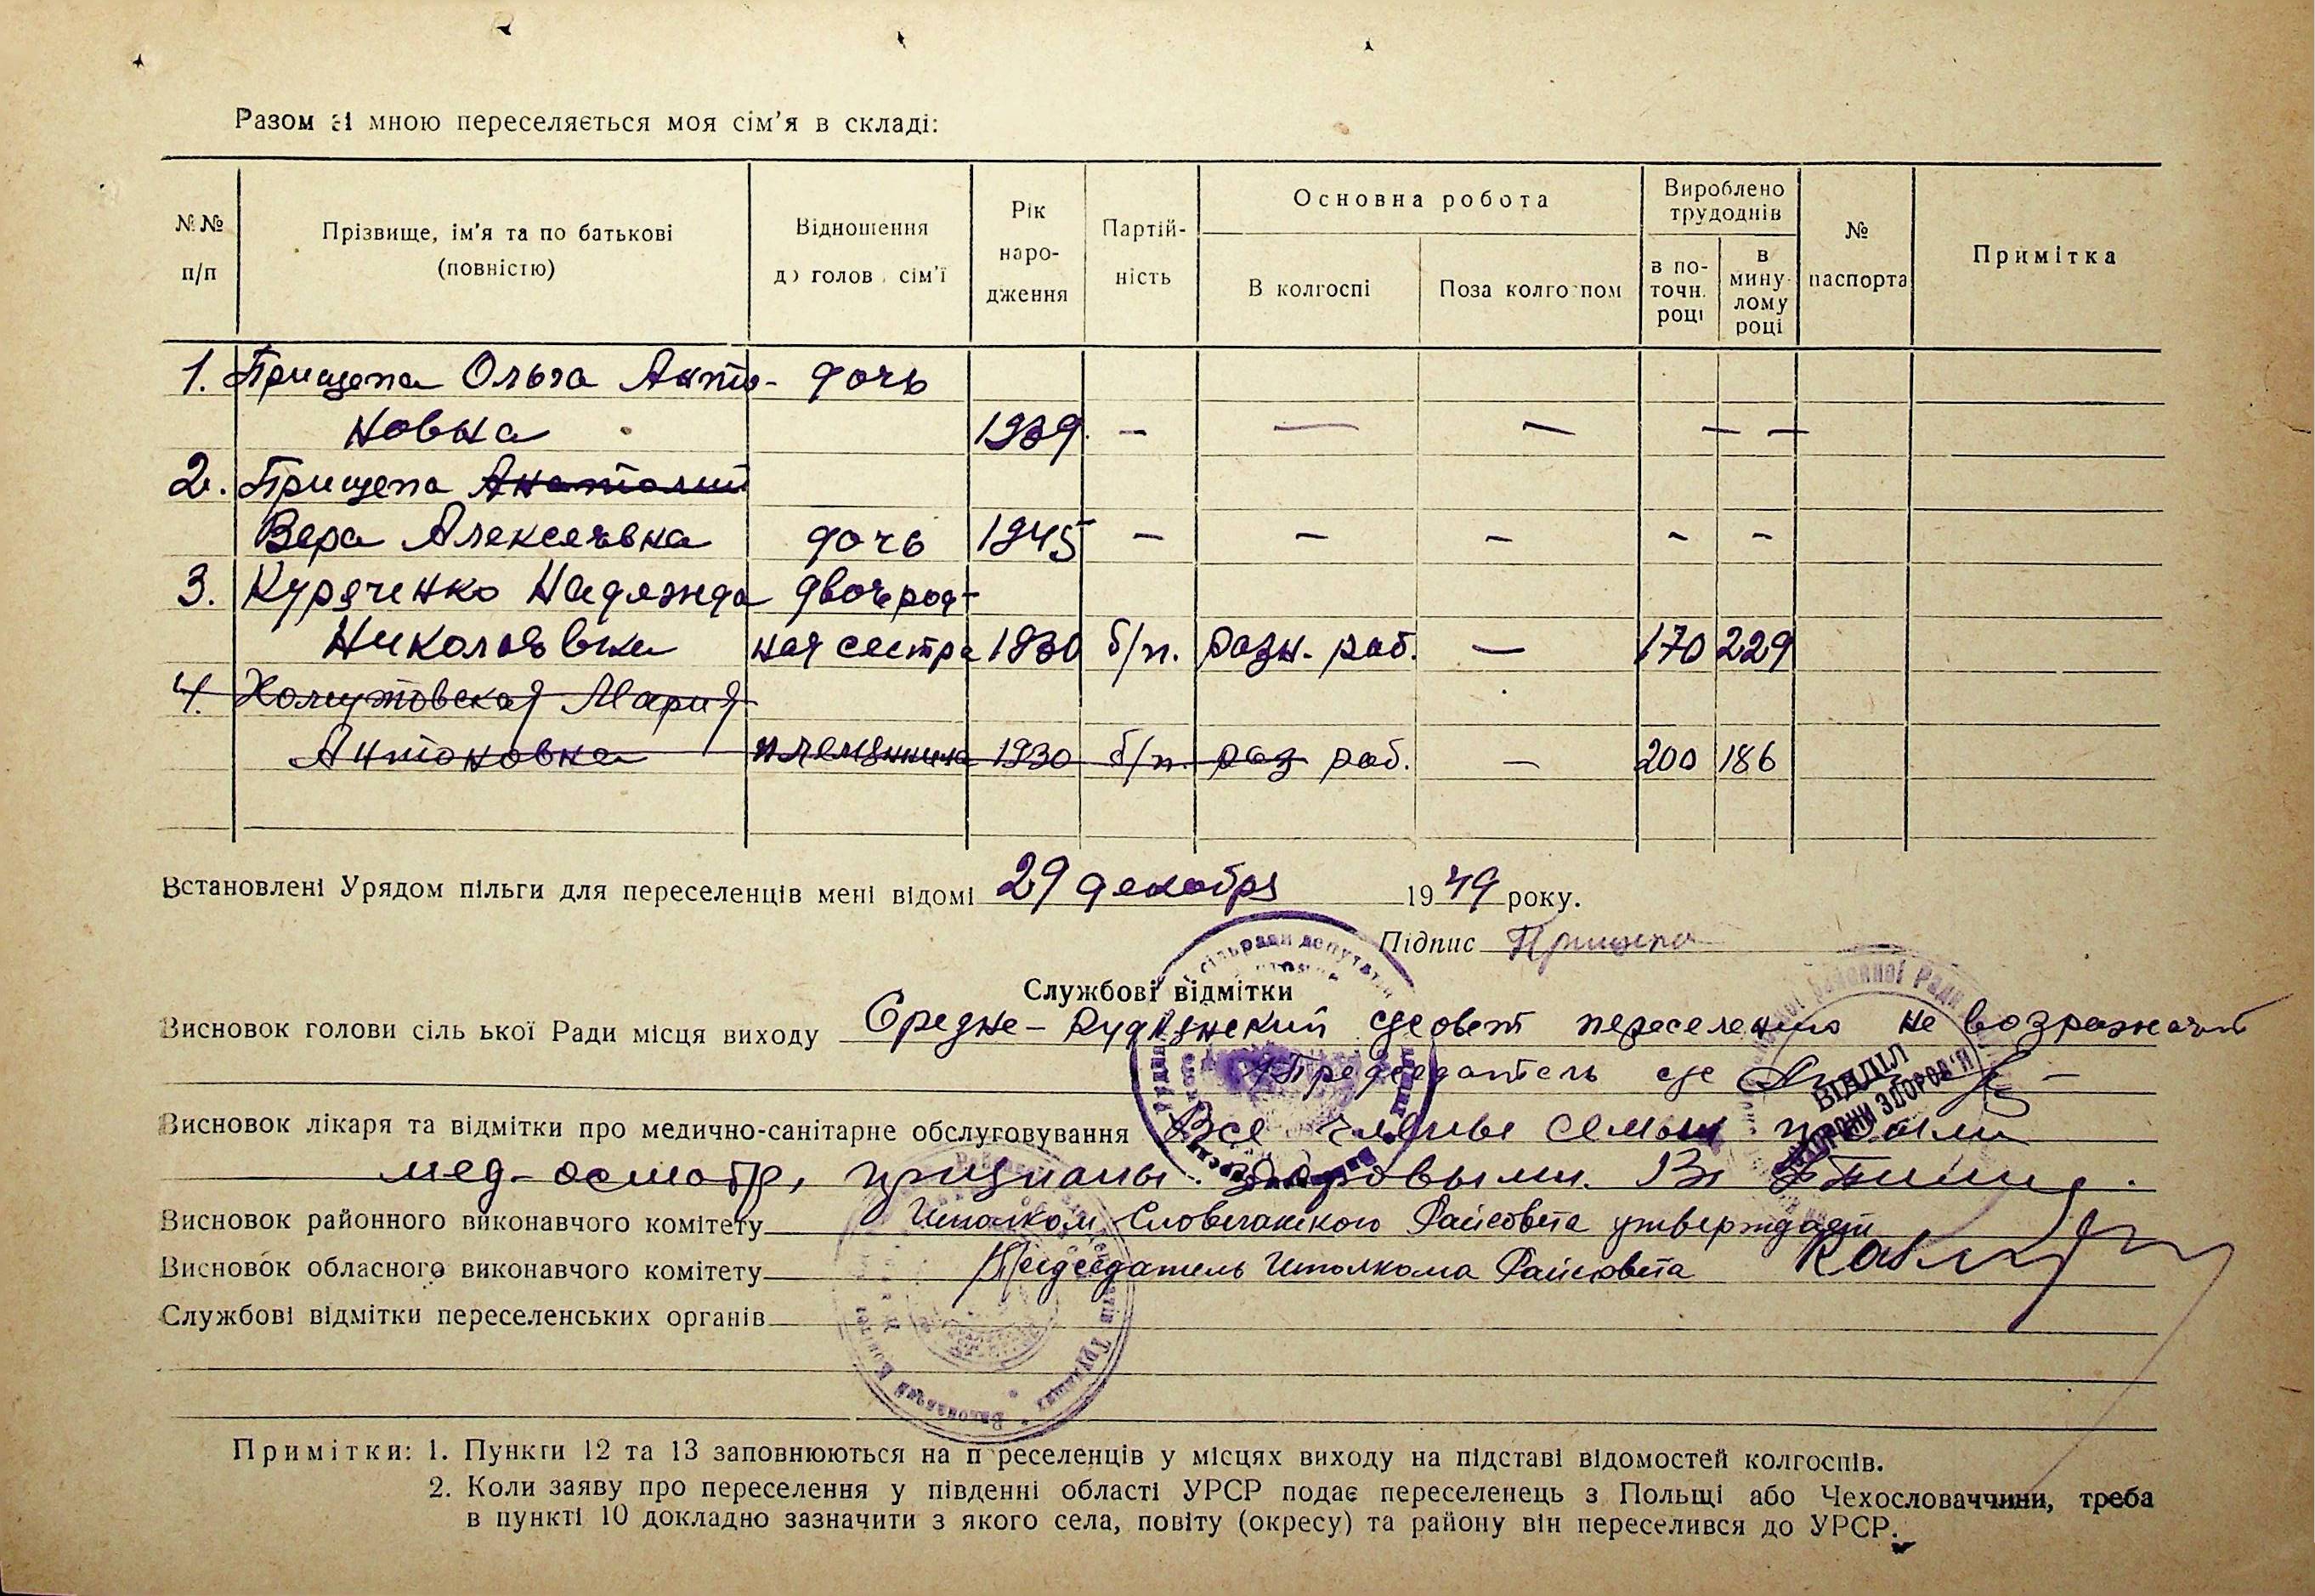 Разом зі мною переселяється моя сім'я в складі:
№№ п/п
Прізвище, ім'я та по батькові (повністю)
Відношення до голов. сім'ї
Рік народження
Партійність
Основна робота
В колгоспі
Поза колгоспом
Вироблено трудоднів
в поточн. році
в минулому році
№ паспорта
Примітка
1. Прищепа Ольга Анто- дочь
новна 1939 – — — — —
2. Прищепа Анатолий
Вера Алексеевна дочь 1945 – – – – –
3. Куряченко Надежда двоюрод-
Николаевна ная сестра 1930 б/п. разн. раб. — 170 229
4. Хомутовская Мария
Антоновна племянница 1930 б/п. раз раб. — 200 186
Встановлені Урядом пільги для переселенців мені відомі 29 декабря 1949 року.
Підпис Прищепа
Службові відмітки
Висновок голови сільської Ради місця виходу Средне-Рудянский с/совет переселению не возражает
Председатель с/с
Висновок лікаря та відмітки про медично-санітарне обслуговування Все члены семьи прошли
мед-осмотр, признаны здоровыми.
Висновок районного виконавчого комітету Исполком Словечанского Райсовета утверждает
Висновок обласного виконавчого комітету Председатель Исполкома Райсовета
Службові відмітки переселенських органів
ВІДДІЛ
ОХОРОНИ ЗДОРОВ'Я
Примітки: 1. Пункти 12 та 13 заповнюються на переселенців у місцях виходу на підставі відомостей колгоспів.
2. Коли заяву про переселення у південні області УРСР подає переселенець з Польщі або Чехословаччини, треба
в пункті 10 докладно зазначити з якого села, повіту (окресу) та району він переселився до УРСР.